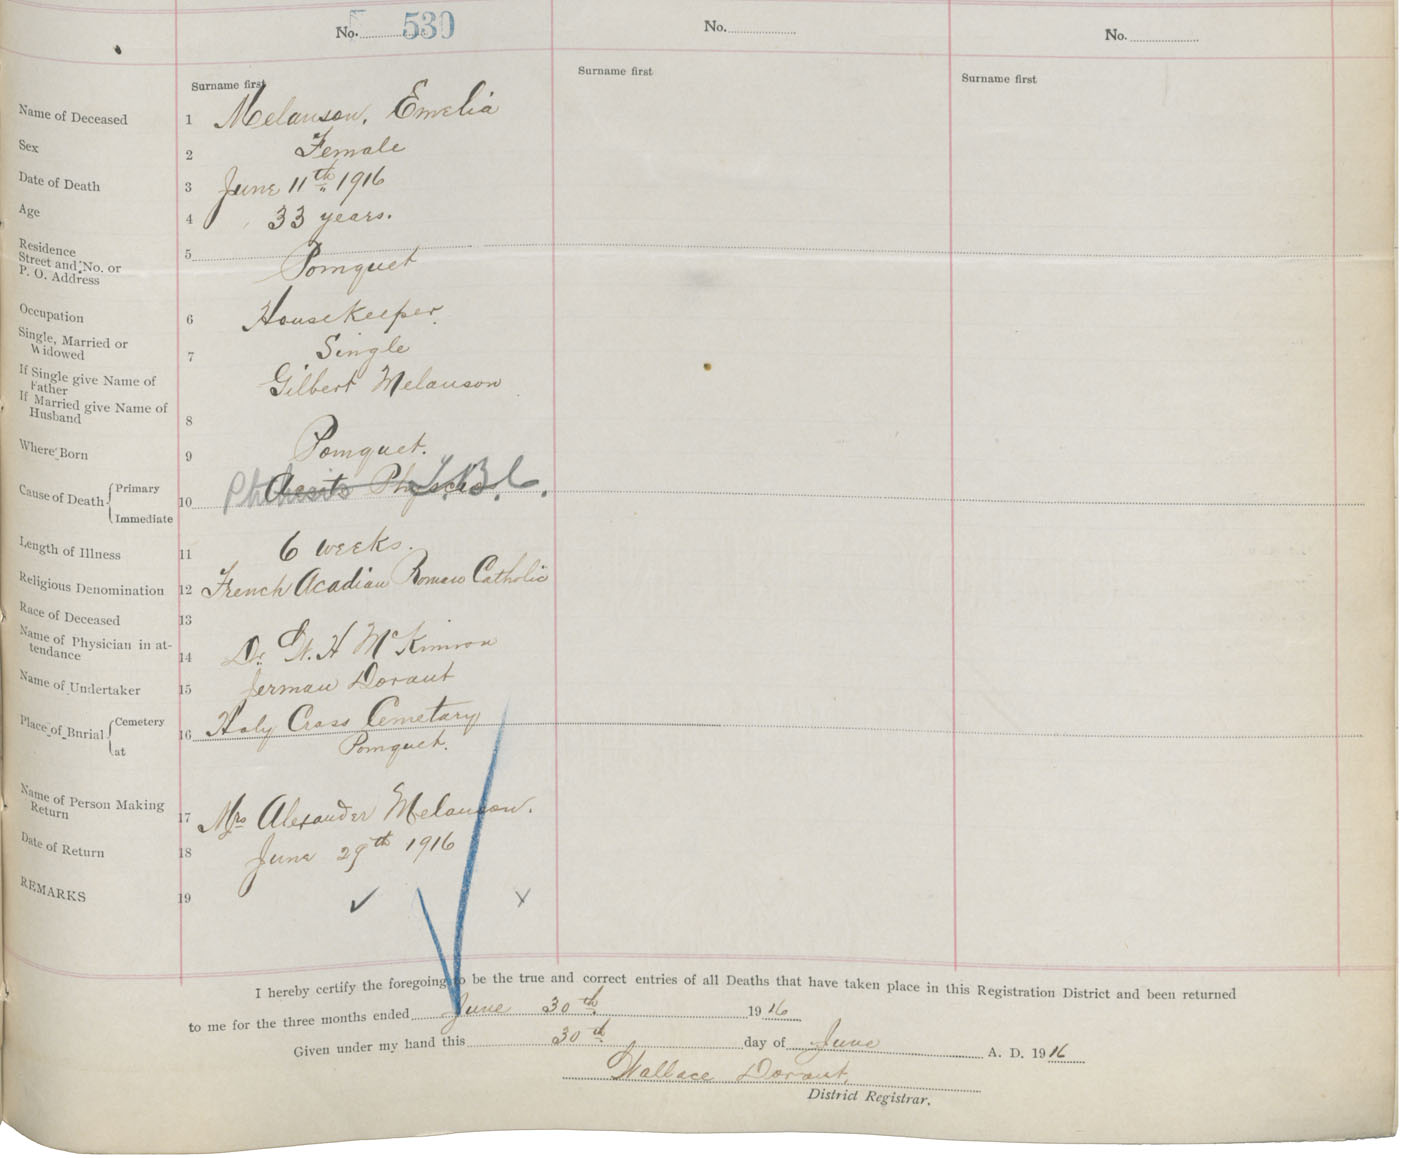 No. 530
No.
No.
Surname first
Surname first
Surname first
Name of Deceased 1 Melanson, Emelia
Sex 2 Female
Date of Death 3 June 11th 1916
Age 4 33 years.
Residence
Street and No. or
P. O. Address
5 Pomquet
Occupation 6 Housekeeper.
Single, Married or
Widowed
7 Single
If Single give Name of
Father
Gilbert Melanson
If Married give Name of
Husband
8
Where Born 9 Pomquet.
Cause of Death { Primary
Immediate
10 Phthisis T.B.C.
Length of Illness 11 6 weeks.
Religious Denomination 12 French Acadian Roman Catholic
Race of Deceased 13
Name of Physician in at-
tendance
14 Dr. W. H McKinnon
Name of Undertaker 15 Jerman Dorant
Place of Burial { Cemetery
at
16 Holy Cross Cemetary
Pomquet.
Name of Person Making
Return
17 Mrs Alexander Melanson.
Date of Return 18 June 29th 1916
REMARKS 19
I hereby certify the foregoing to be the true and correct entries of all Deaths that have taken place in this Registration District and been returned
to me for the three months ended June 30th 1916
Given under my hand this 30th day of June A. D. 1916
Wallace Dorant,
District Registrar.